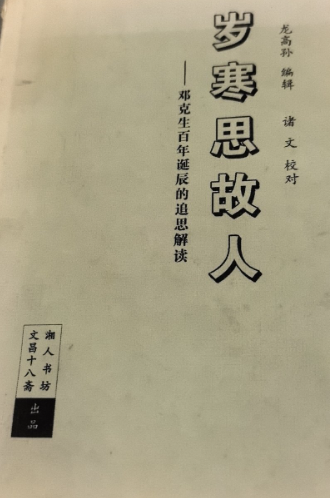 龙高孙 编辑 诸文 校对
岁寒思故人
——邓克生百年诞辰的追思解读
湘人书坊
文昌十八斋
出品